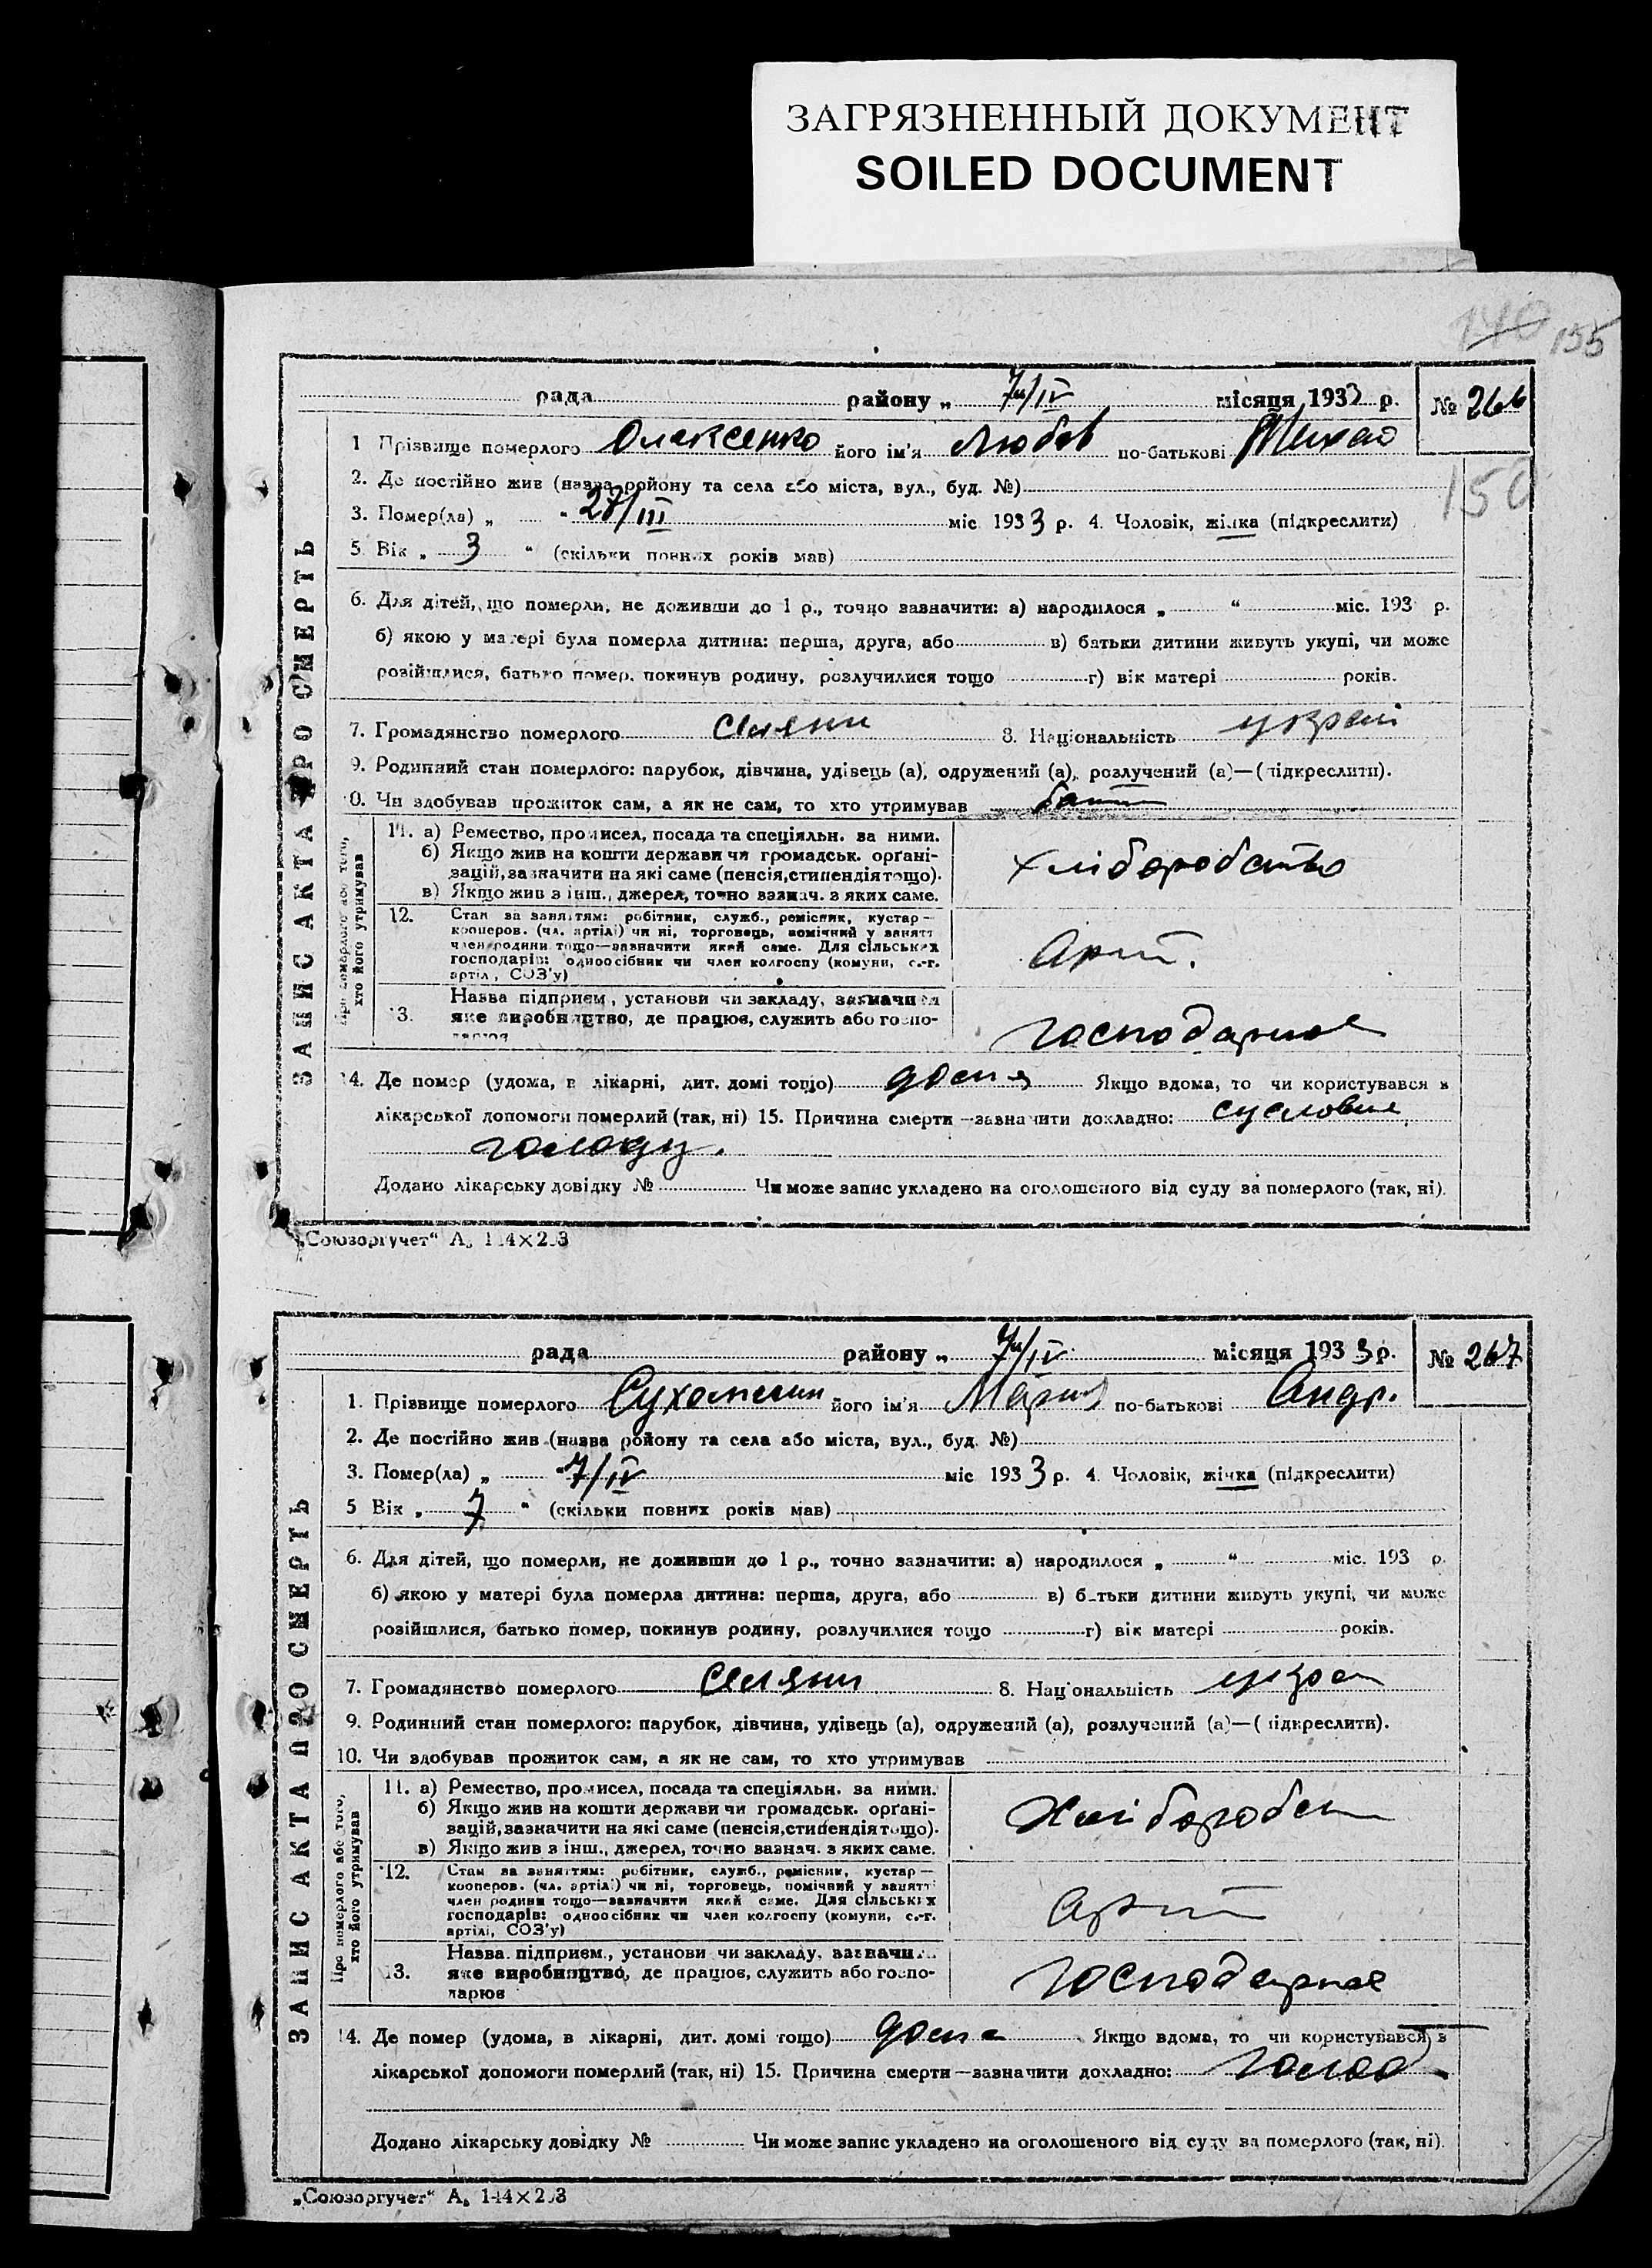 ЗАГРЯЗНЕННЫЙ ДОКУМЕНТ
SOILED DOCUMENT
140 155
рада району „ 7/IV місяця 1933 р. № 266
1 Прізвище померлого Олексенко його ім'я Любов по-батькові Михао
150
2. Де постійно жив (назва ройону та села або міста, вул., буд. №)
3. Помер(ла) „ " 27/III міс 1933 р. 4. Чоловік, жінка (підкреслити)
5. Вік „ 3 " (скільки повних років мав)
6. Для дітей, що померли, не доживши до 1 р., точно зазначити: а) народилося „ " міс. 193 р.
б) якою у матері була померла дитина: перша, друга, або в) батьки дитини живуть укупі, чи може
розійшлися, батько помер, покинув родину, розлучилися тощо г) вік матері років.
7. Громадянство померлого селянин 8. Національність украї
9. Родинний стан померлого: парубок, дівчина, удівець (а), одружений (а), розлучений (а)—(підкреслити).
0. Чи здобував прожиток сам, а як не сам, то хто утримував
ЗАПИС АКТА ПРО СМЕРТЬ
Про померлого або того,
хто його утримував
11. а) Ремество, промисел, посада та спеціяльн. за ними.
б) Якщо жив на кошти держави чи громадськ. орґані-
зацій, зазначити на які саме (пенсія, стипендія тощо).
в) Якщо жив з інш., джерел, точно зазнач. з яких саме.
хліборобство
12. Стан за заняттям: робітник, служб., ремісник, кустар—
кооперов. (чл. артілі) чи ні, торговець, помічний у занятт
член родини тощо—зазначити який саме. Для сільських
господарів: одноосібник чи член колгоспу (комуни, с.-г.
артіл, СОЗ'у)
Арт.
13. Назва підприєм, установи чи закладу, зазначити
яке виробництво, де працює, служить або госпо-
дарює
господарює
14. Де помер (удома, в лікарні, дит. домі тощо) дома Якщо вдома, то чи користувався з
лікарської допомоги померлий (так, ні) 15. Причина смерти—зазначити докладно:
голоду.
Додано лікарську довідку № Чи може запис укладено на оголошеного від суду за померлого (так, ні).
„Союзоргучет“ А₅ 144×203
рада району „ 7/IV місяця 1933 р. № 267
1. Прізвище померлого його ім'я Мария по-батькові Андр.
2. Де постійно жив (назва ройону та села або міста, вул., буд. №)
3. Помер(ла) „ " 7/IV міс 1933 р. 4. Чоловік, жінка (підкреслити)
5 Вік „ 7 " (скільки повних років мав)
6. Для дітей, що померли, не доживши до 1 р., точно зазначити: а) народилося „ " міс. 193 р.
б) якою у матері була померла дитина: перша, друга, або в) батьки дитини живуть укупі, чи може
розійшлися, батько помер, покинув родину, розлучилися тощо г) вік матері років.
7. Громадянство померлого селянин 8. Національність украї
9. Родинний стан померлого: парубок, дівчина, удівець (а), одружений (а), розлучений (а)—(підкреслити).
10. Чи здобував прожиток сам, а як не сам, то хто утримував
ЗАПИС АКТА ПРО СМЕРТЬ
Про померлого або того,
хто його утримував
11. а) Ремество, промисел, посада та спеціяльн. за ними.
б) Якщо жив на кошти держави чи громадськ. орґані-
зацій, зазначити на які саме (пенсія, стипендія тощо).
в) Якщо жив з інш., джерел, точно зазнач. з яких саме.
Хліборобст
12. Стан за заняттям: робітник, служб., ремісник, кустар—
кооперов. (чл. артілі) чи ні, торговець, помічний у занятті
член родини тощо—зазначити який саме. Для сільських
господарів: одноосібник чи член колгоспу (комуни, с.-г.
артілі, СОЗ'у)
Арт
13. Назва підприєм., установи чи закладу, зазначити
яке виробництво, де працює, служить або госпо-
дарює
господарює
14. Де помер (удома, в лікарні, дит. домі тощо) дома Якщо вдома, то чи користувався з
лікарської допомоги померлий (так, ні) 15. Причина смерти—зазначити докладно: голод
Додано лікарську довідку № Чи може запис укладено на оголошеного від суду за померлого (так, ні).
„Союзоргучет“ А₅ 144×203